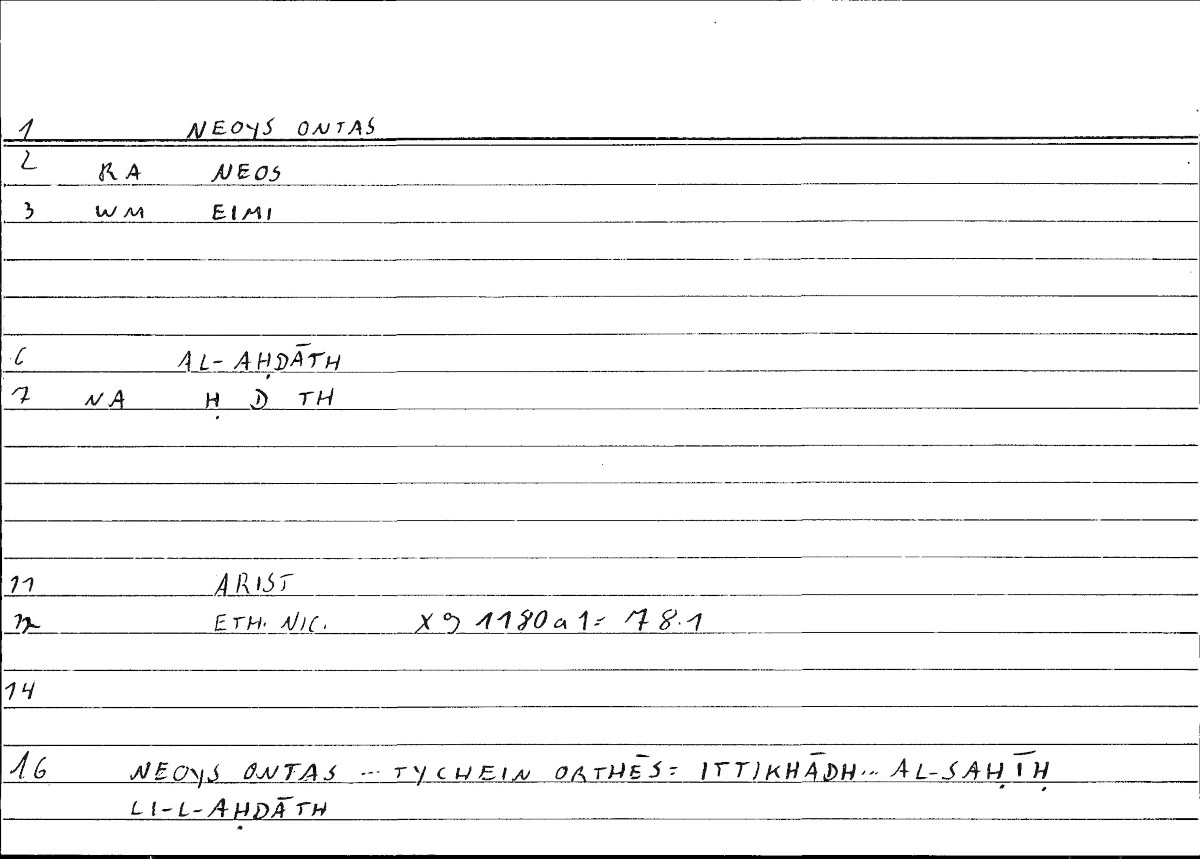 1 NEOYS ONTAS
2 RA NEOS
3 WM EIMI
6 AL-AḤDĀTH
7 NA Ḥ D TH
11 ARIST
12 ETH. NIC. X 9 1180a1= 78.1
14
16 NEOYS ONTAS ... TYCHEIN ORTHĒS= ITTIKHĀDH... AL-SAḤĪḤ
LI-L-AḤDĀTH